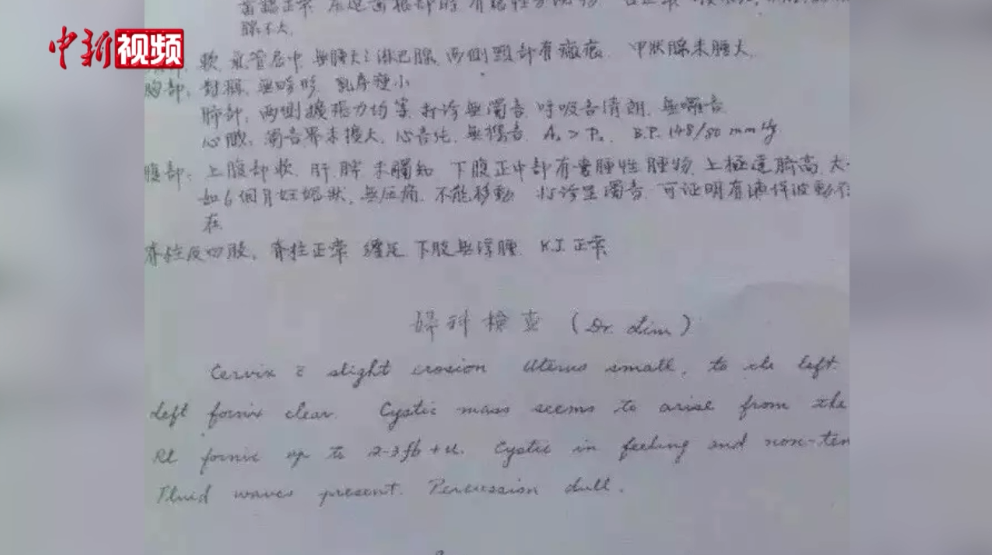 中新视频
腺不大
軟, 氣管居中, 無腫大之淋巴腺, 兩側頸部有瘢痕. 甲狀腺未腫大.
胸部: 對稱, 無畸形, 乳房
肺部, 兩側擴張力均等, 打診無濁音, 呼吸音清朗, 無囉音
心臟, 濁音界未擴大, 心音純, 無雜音. A₂ > P₂. B.P. 148/80 mmHg
腹部: 上腹部軟, 肝脾未觸知, 下腹正中部有囊腫性腫物, 上極達臍高, 大
如6個月妊娠狀, 無压痛, 不能移動. 打诊呈濁音, 可证明有液体波動
在
脊柱及四肢, 脊柱正常 纏足 下肢無浮腫. K.J 正常
婦科檢查 (Dr. Lim)
Cervix c̄ slight erosion Uterus small, to the left.
Left fornix clear. Cystic mass seems to arise from the
Rt fornix up to 2-3fb + u. Cystic in feeling and non-ten
Fluid waves present. Percussion dull.